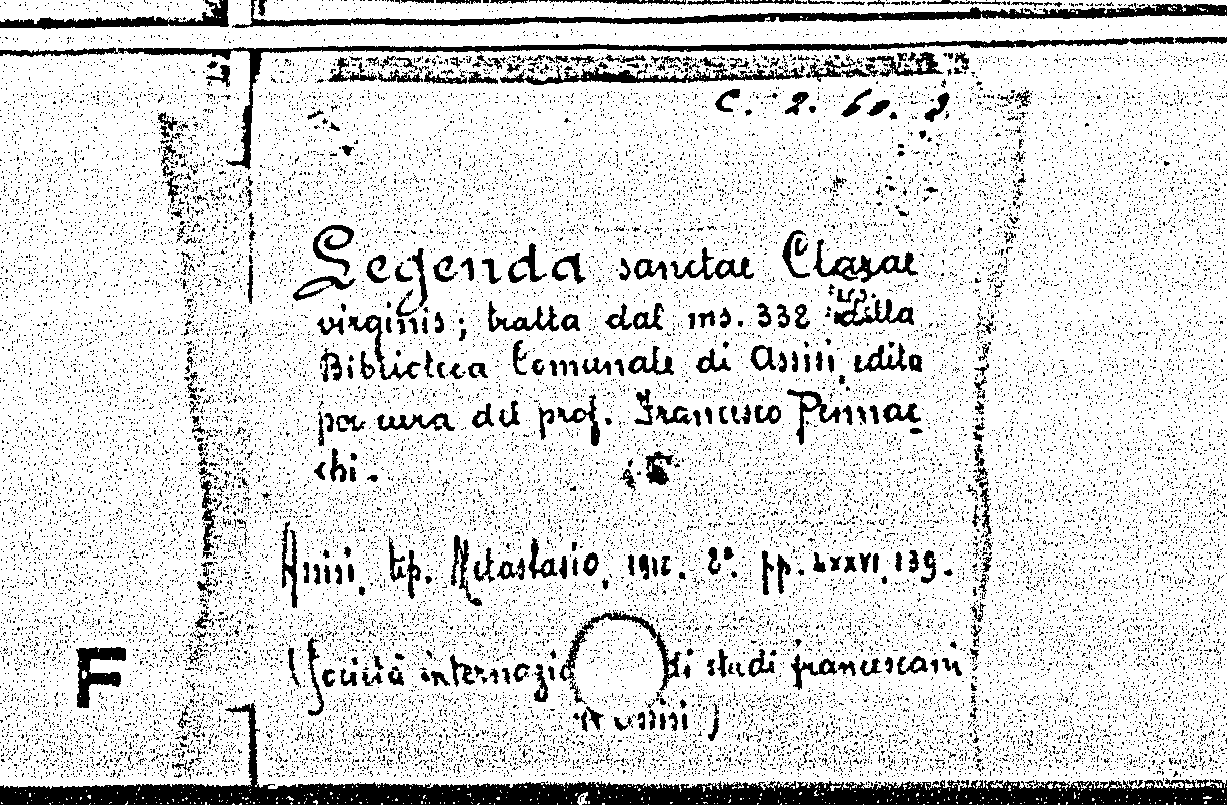 C. 2. 60. 8.
Legenda sanctae Clarae
virginis; tratta dal ms. 338 della
Biblioteca Comunale di Assisi, edita
per cura del prof. Francesco Pennac
chi.
Assisi, tip. Metastasio, 1910. 8°. pp. LXXVI, 139.
F
(Società internazio di studi francescani
Assisi)